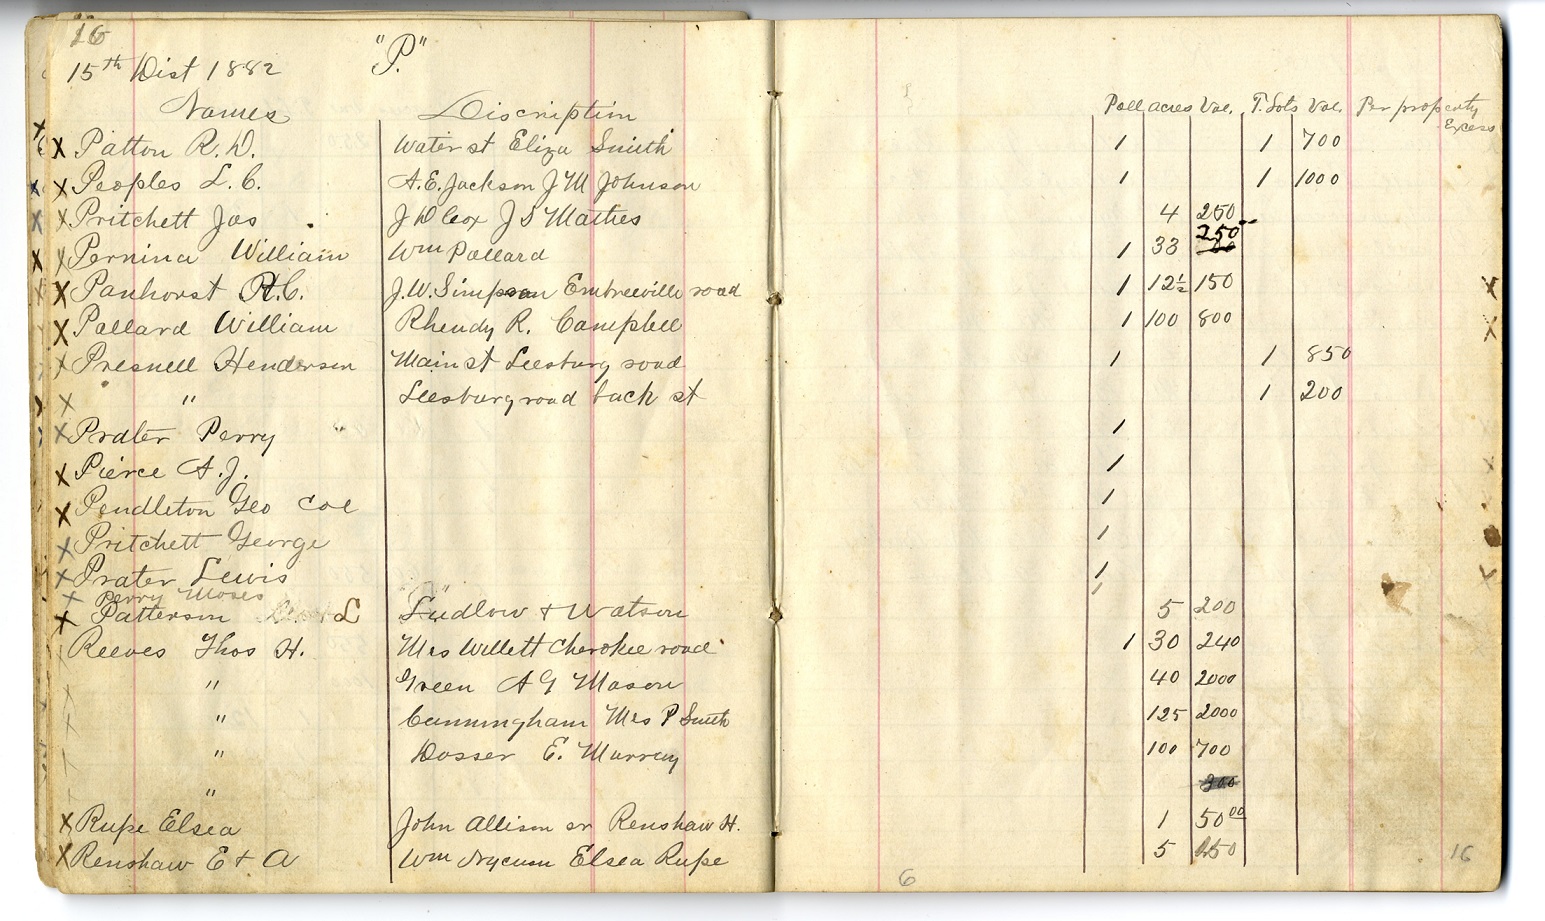 16
15th Dist 1882 "P."
Names Discription Poll acres Val. T. Lots Val. Per property Excess
X Patton R. D. Water st Eliza Smith 1 1 700
X Peoples L. C. A. E. Jackson J M Johnson 1 1 1000
X Pritchett Jas J D Cox J S Mathes 4 250
X Pernina William Wm Pollard 1 33 250
X Panhorst H. C. J. W. Simpson Embreeville road 1 12½ 150
X Pollard William Rhendy R. Campbell 1 100 800
X Presnell Henderson Main st Leesburg road 1 1 850
X " Leesburg road back st 1 200
X Prater Perry " 1
X Pierce A. J. 1
X Pendleton Geo Col 1
X Pritchett George 1
X Prater Lewis 1
X Perry Moses 1
X Patterson L Ludlow + Watson 5 200
Reeves Thos H. Mrs Willett Cherokee road 1 30 240
" Green A G Mason 40 2000
" Cunningham Mrs P Smith 125 2000
" Dosser E. Murray 100 700
" 300
X Rupe Elsea John Allison sr Renshaw H. 1 50 00
X Renshaw E + A Wm Elsea Rupe 5 150
6
16